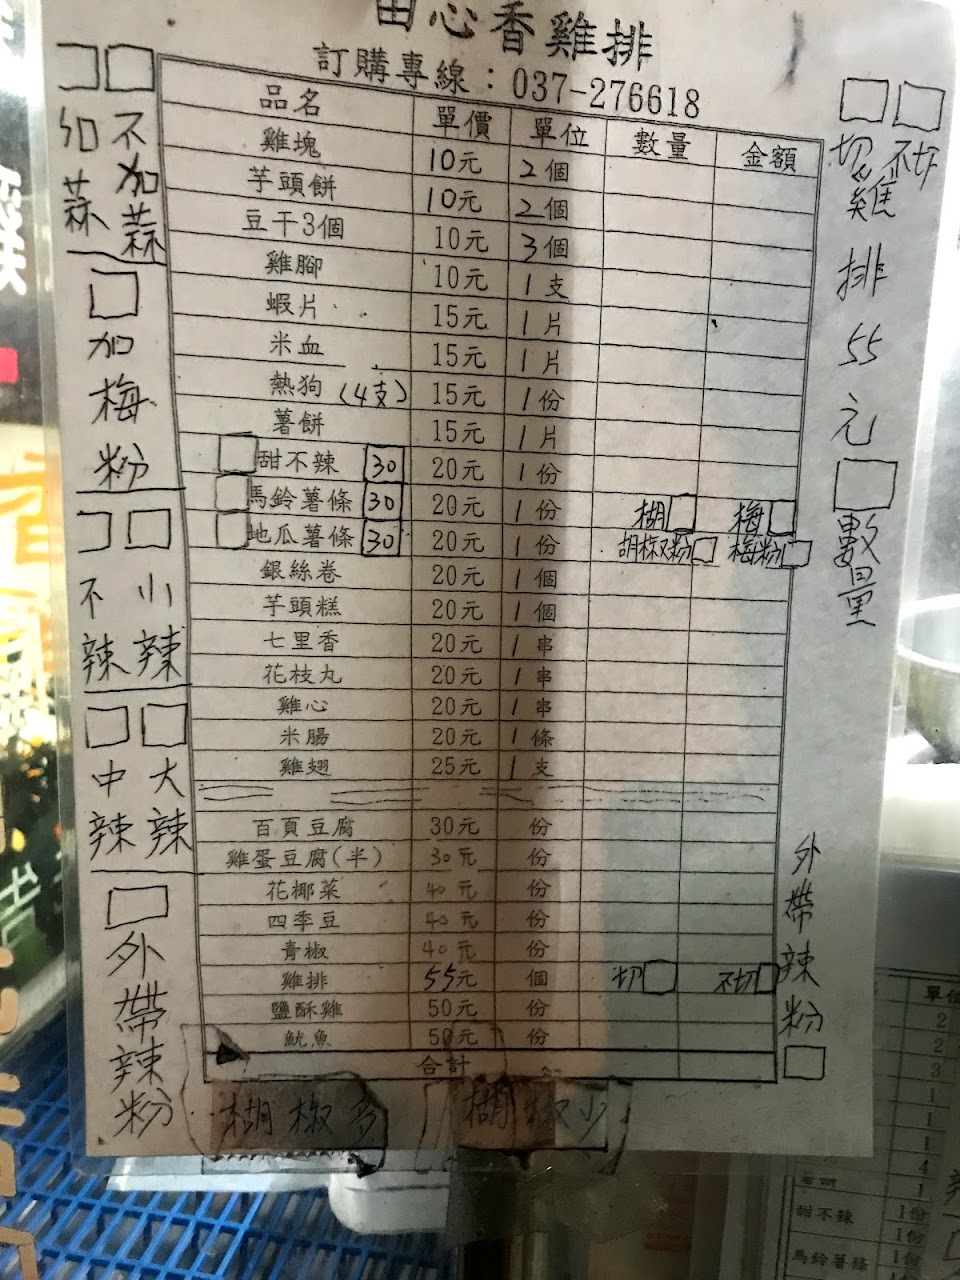 心香雞排
訂購專線：037-276618
品名 單價 單位 數量 金額
雞塊 10元 2個
芋頭餅 10元 2個
豆干3個 10元 3個
雞腳 10元 1支
蝦片 15元 1片
米血 15元 1片
熱狗(4支) 15元 1份
薯餅 15元 1片
甜不辣 30 20元 1份
馬鈴薯條 30 20元 1份 胡 梅
地瓜薯條 30 20元 1份 胡椒粉 梅粉
銀絲卷 20元 1個
芋頭糕 20元 1個
七里香 20元 1串
花枝丸 20元 1串
雞心 20元 1串
米腸 20元 1條
雞翅 25元 1支
百頁豆腐 30元 份
雞蛋豆腐(半) 30元 份
花椰菜 40元 份
四季豆 40元 份
青椒 40元 份
雞排 55元 個 切 不切
鹽酥雞 50元 份
魷魚 50元 份
合計
胡椒多 胡椒少
加蒜
不加蒜
加梅粉
不辣
小辣
中辣
大辣
外帶辣粉
切
不切
雞排55元
數量
外帶辣粉
單位
2
2
3
1
1
1
4
1
甜不辣 1份
1份
馬鈴薯條 1份